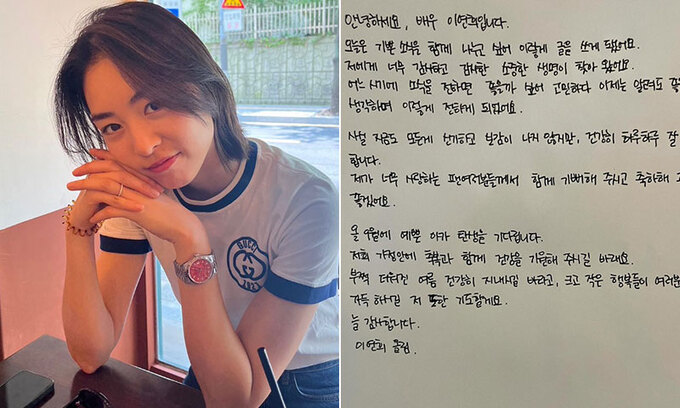 GUCCI
1921
안녕하세요, 배우 이연희입니다.
오늘은 기쁜 소식을 함께 나누고 싶어 이렇게 글을 쓰게 됐어요.
저에게 너무 감사하고 감사한 소중한 생명이 찾아 왔어요.
어느 시기에 소식을 전하면 좋을까 싶어 고민하다 이제는 알려도 좋
생각하며 이렇게 전하게 되었어요.
사실 지금도 모든게 신기하고 실감이 나지 않지만, 건강히 하루하루 잘
합니다.
제가 너무 사랑하는 팬여러분들께서 함께 기뻐해 주시고 축하해
좋겠어요.
올 9월에 예쁜 아가 탄생을 기다립니다.
저희 가정안에 축복과 함께 건강을 기원해 주시길 바래요.
부쩍 더워진 여름 건강히 지내시길 바라고, 크고 작은 행복들이 여러분
가득 하시길 저 또한 기도할게요.
늘 감사합니다.
이연희 올림.